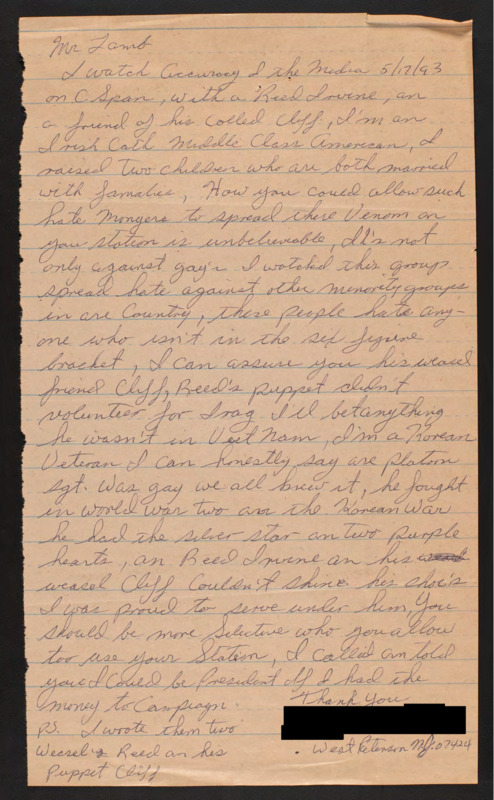 Mr Lamb
I watch Accuracy of the Media 5/17/93
on C Span, with a Reed Irvine, an
a friend of his called Cliff, I'm an
Irish Cath Middle Class American, I
raised two children who are both married
with famalies, How you could allow such
hate Mongers to spread there Venom on
you station is unbelieveable, It's not
only against gay's I watched this group
spread hate against other minority groups
in are Country, these people hate any-
one who isn't in the six figure
bracket, I can assure you his weasel
friend Cliff, Reed's puppet didn't
volunteer for Iraq. I'll bet anything
he wasn't in Viet Nam, I'm a Korean
Veteran I can honestly say are platoon
sgt. was gay we all knew it, he fought
in world war two an the Korean War
he had the silver star an two purple
hearts, an Reed Irvine an his
weasel Cliff Couldn't shine his shoe's
I was proud to serve under him, You
should be more Selective who you allow
too use your Station, I called an told
you I could be President if I had the
money to Campaign.
Thank You
PS. I wrote them two
Weasel's Reed an his
Puppet Cliff
West Paterson N.J. 07424